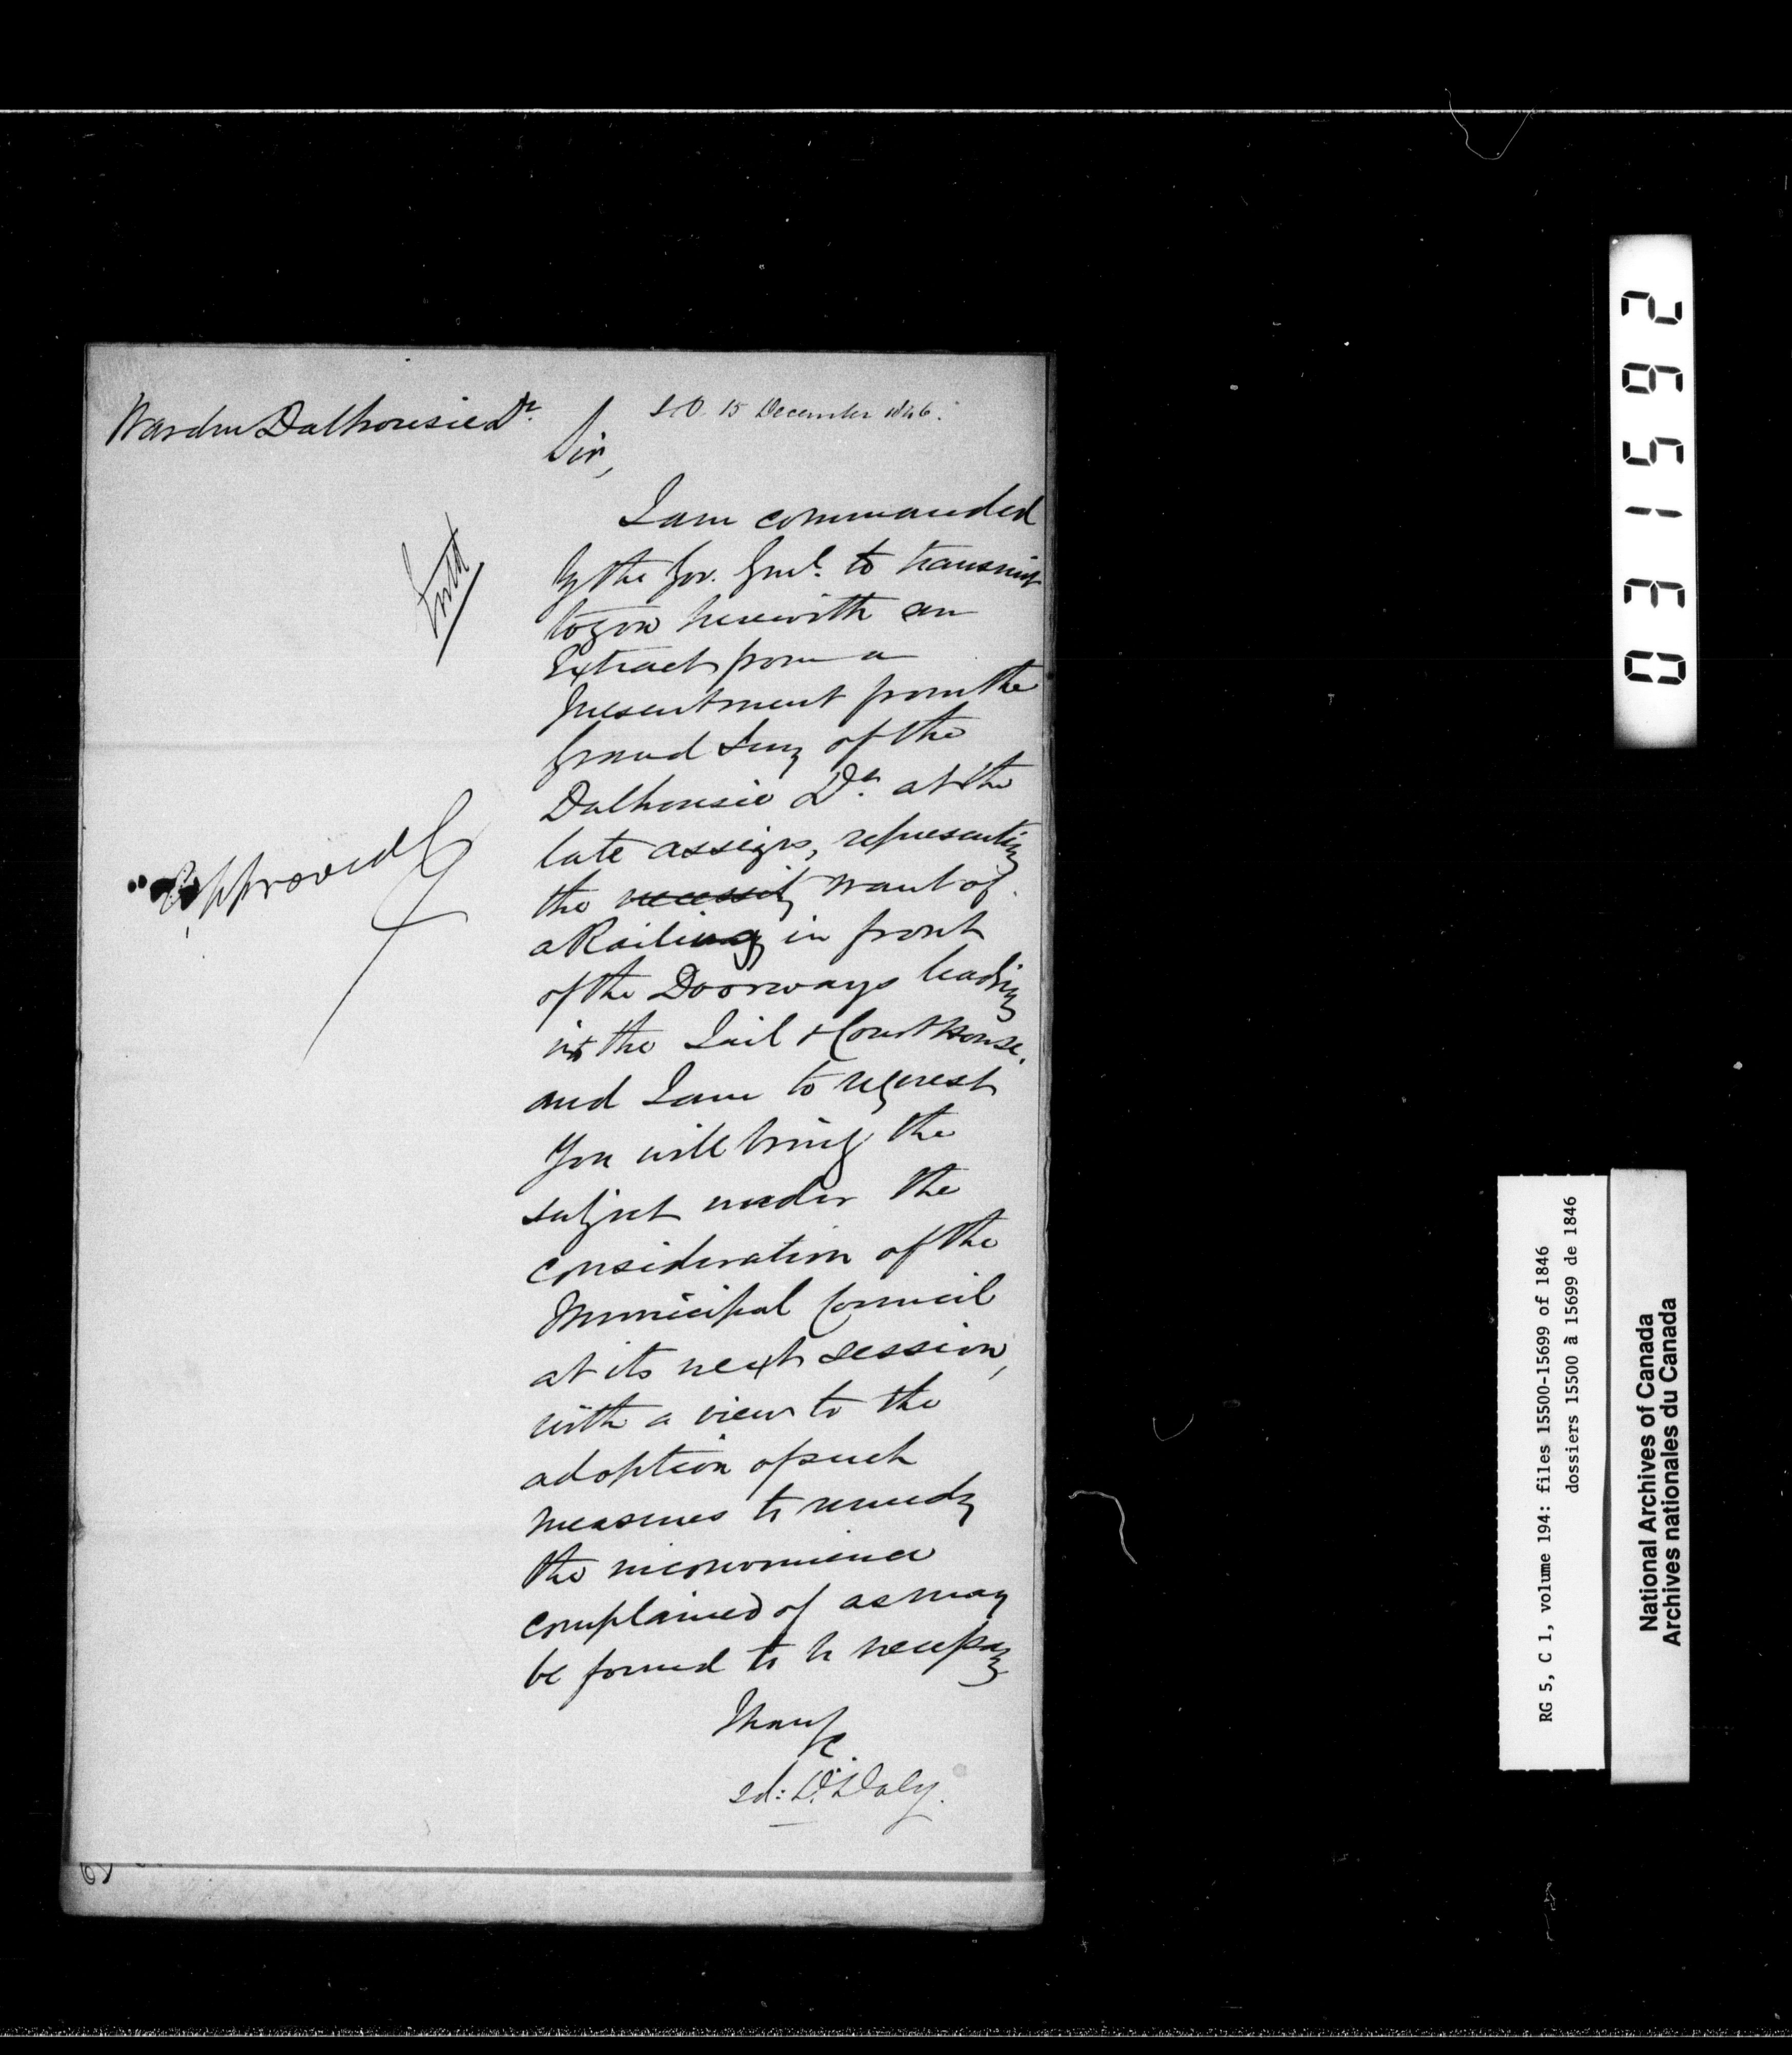 Warden Dalhousie Dt.
S.O. 15 December 1846.
Sir,
I am commanded
by the Gov. Genl. to transmit
to you herewith an
Extract from a
Presentment from the
Grand Jury of the
Dalhousie Dt. at the
late assizes, representing
the necessity want of
a Railing in front
of the Doorways leading
into the Jail & Court House.
and I am to request
you will bring the
subject under the
consideration of the
Municipal Council
at its next session,
with a view to the
adoption of such
measures to remedy
the inconvenience
complained of as may
be found to be necessary
I have &c
sd: D. Daly.
Approved
031592
RG 5, C 1, volume 194: files 15500-15699 of 1846
dossiers 15500 à 15699 de 1846
National Archives of Canada
Archives nationales du Canada